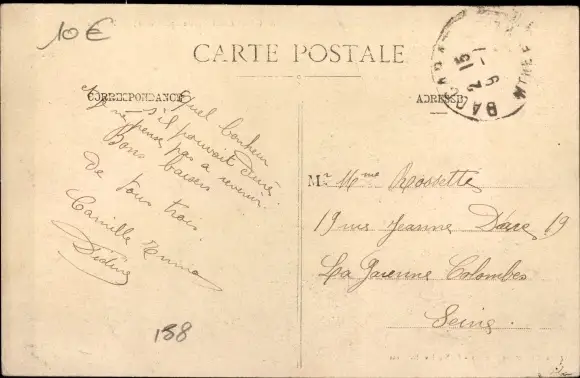 10 €
CARTE POSTALE
CORRESPONDANCE
ADRESSE
Quel bonheur
s'il pouvait durer
ne pense pas a revenir
Bons baisers
de tous trois.
Camille
Mr Mme Rossette
19 rue Jeanne D'arc 19
La Garenne Colombes
Seine.
158